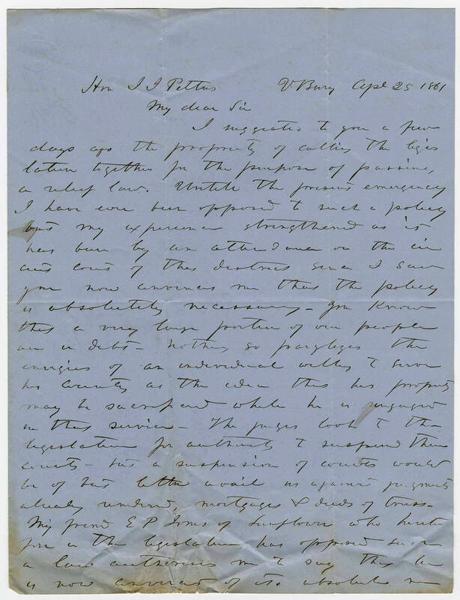 Hon J J Pettus V Burg Apl 25 1861
My dear Sir
I suggested to you a few
days ago the propriety of calling the legis
lature together for the purpose of passing
a relief law. Untill the present emergency
I have ever been opposed to such a policy
but my experience strengthened as it
has been by an attendance on the cir
cuit court of this district since I saw
you now convinces me that the policy
is absolutely necessary - You know
that a very large portion of our people
are in debt - Nothing so paralyzes the
energies of an individual willing to serve
his country as the idea that his property
may be sacrificed while he is engaged
in that service - The judges look to the
legislature for authority to suspend their
courts - but a suspension of courts would
be of but little avail as against judgments
already rendered, mortgages & deeds of trust -
My friend E P Jones of who hereto
fore in the legislature has opposed such
a law authorises me to say that he
is now convinced of its absolute ne